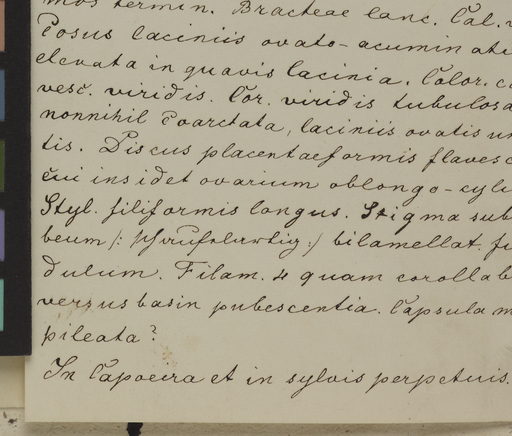 mos termin. Bracteae lanc. Cal.
posus laciniis ovato-acuminati
elevata in quavis lacinia. Color. c
vesc. viridis. Cor. viridis tubulosa
nonnihil coarctata, laciniis ovatis un
tis. Discus placentaeformis flavesc
cui insidet ovarium oblongo-cyli
Styl. filiformis longus. Stigma sub
beum /: :/ bilamellat. fu
dulum. Filam. 4 quam corolla b
versus basin pubescentia. Capsula m
pileata?
In Capoeira et in sylvis perpetuis.